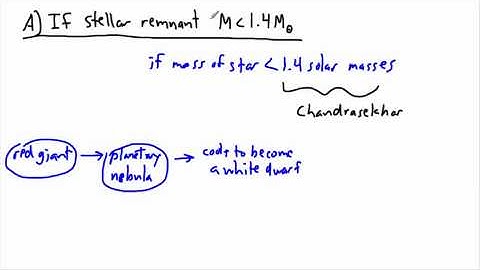 A) If stellar remnant M<1.4M⊙
if mass of star < 1.4 solar masses
Chandrasekhar
red giant → planetary nebula → cools to become
a white dwarf